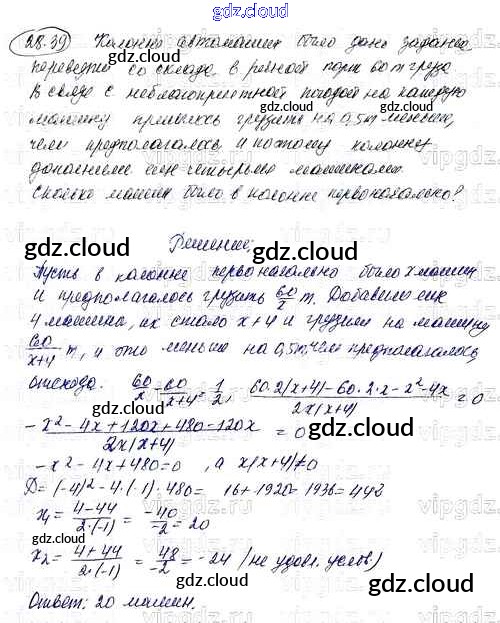 gdz.cloud
28.39 Колонне автомашин было дано задание
перевезти со склада в речной порт 60 т груза
В связи с неблагоприятной погодой на каждую
машину пришлось грузить на 0,5 т меньше,
чем предполагалось и поэтому колонну
дополнили ещё четырьмя машинами.
Сколько машин было в колонне первоначально?
gdz.cloud
gdz.cloud
Решение:
gdz.cloud
Пусть в колонне первоначально было x машин
и предполагалось грузить 60/x т. Добавили
4 машины, их стало x+4 и грузили на машину
60/(x+4) т, и это меньше на 0,5 т, чем предполагалось,
отсюда. 60/x - 60/(x+4) = 1/2, (60·2(x+4)-60·2·x-x²-4x)/(2x(x+4)) = 0
(-x²-4x+120x+480-120x)/(2x(x+4)) = 0
-x²-4x+480=0, а x(x+4)≠0
D=(-4)²-4·(-1)·480= 16+1920=1936=44²
x₁= (4-44)/(2·(-1)) = -40/-2 = 20
x₂= (4+44)/(2·(-1)) = 48/-2 = -24 (не удовл. услов.)
Ответ: 20 машин.
gdz.cloud
gdz.cloud
gdz.cloud
gdz.cloud
gdz.cloud